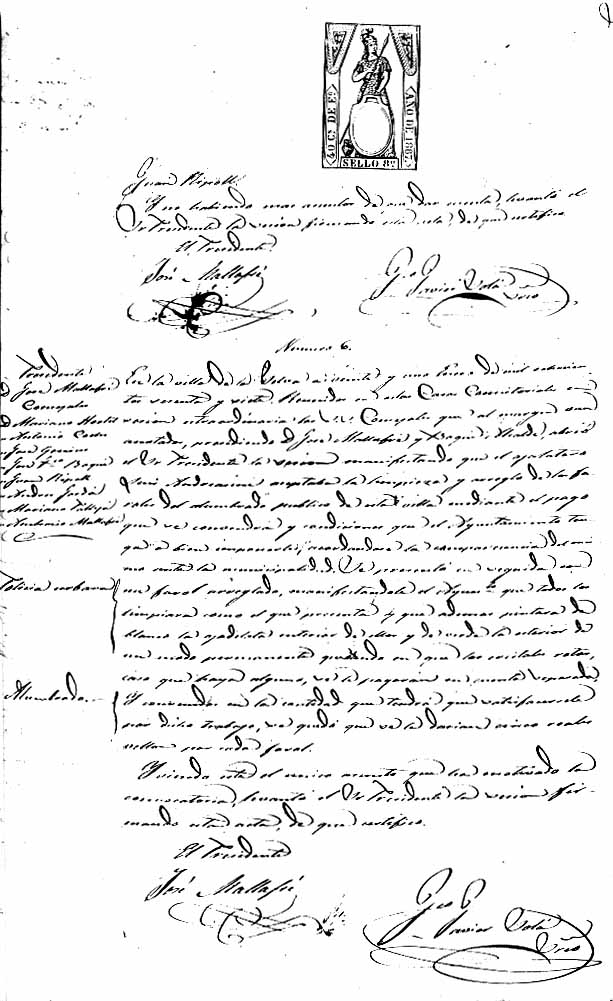 40 Cs. DE Eo. AÑO DE 1867
SELLO 8o.
Juan Ripoll.
Y no habiendo mas asuntos de que dar cuenta, levantó el
Sr Presidente la sesion firmando esta acta, de que certifico.
El Presidente
José Mallafré
Javier Solá
Srio
Numero 6.
Presidente
D José Mallafré
Concejales
D Mariano Hortet
Antonio
José
José Fco
Juan Ripoll
Andreu Jordá
Mariano
Antonio Mallafré
Policia urbana
Alumbrado
En la villa de la Selva a veinte y uno Enero de mil ochocien-
tos sesenta y siete. Reunidos en estas Casas Consistoriales en
sesion extraordinaria los SS. Concejales que al margen van
anotados, presidiendo D José Mallafré y Alcalde, abrió
el Sr Presidente la sesion manifestando que el ojalatero
aceptaba la limpieza y arreglo de los fa-
roles del alumbrado publico de esta villa mediante el pago
que se convendra y condiciones que el Ayuntamiento ten-
ga a bien imponerle; acordandose la comparecencia del mis-
mo ante la municipalidad. Se presentó en seguida con
un farol arreglado, manifestandole el Ayunto. que todos los
limpiara como el que presenta y que ademas pintara de
blanco la ojadelata interior de ellos y de verde la exterior de
un modo permanente quedando en que los cristales rotos,
caso que haya alguno, se le pagarán en cuenta separada.
Y convenidos en la cantidad que tendrá que satisfacerle
por dicho trabajo, se quedó que se le darian cinco reales
vellon por cada farol.
Y siendo este el unico asunto que ha motivado la
convocatoria, levantó el Sr Presidente la sesion fir-
mando esta acta, de que certifico.
El Presidente
José Mallafré
Javier Solá
Srio